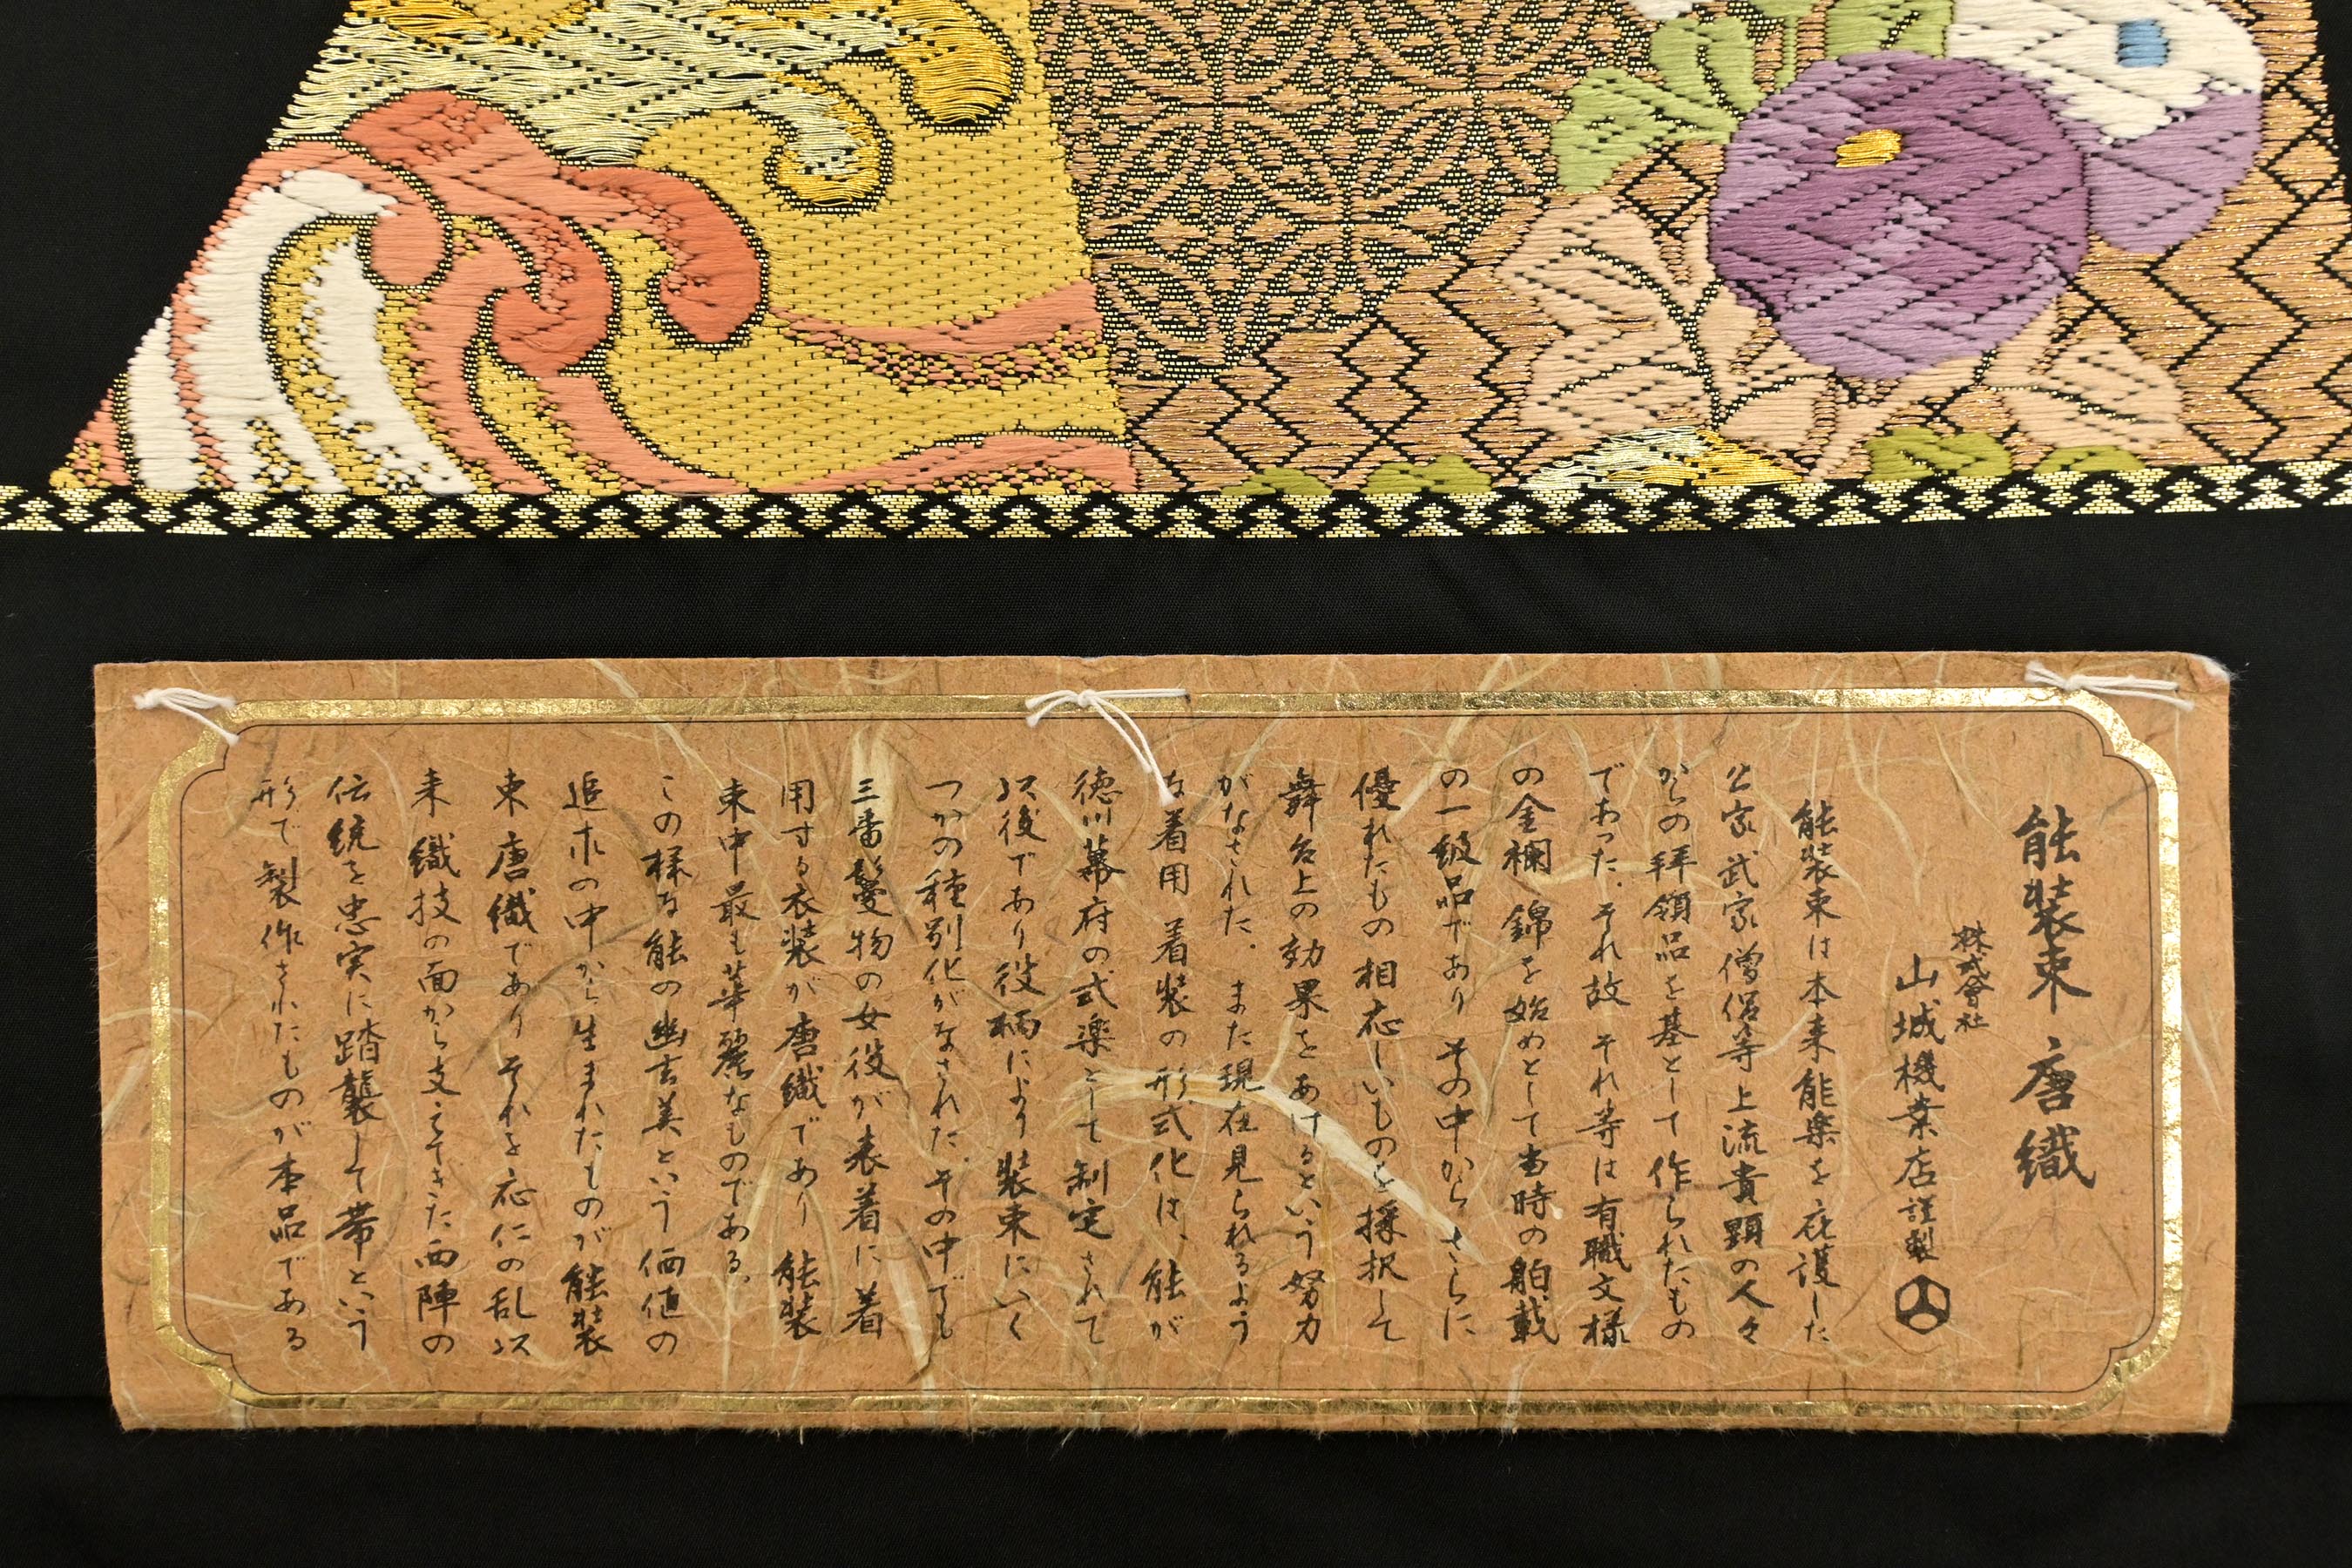 能装束 唐織
株式會社
山城機業店謹製
能装束は本来能楽を庇護した
公家武家僧侶等上流貴顕の人々
からの拝領品を基として作られたもの
であった。それ故 それ等は有職文様
の金襴 錦を始めとして当時の舶載
の一級品であり その中からさらに
優れたもの相応しいものを採択して
舞台上の効果をあげるという努力
がなされた。また現在見られるよう
な着用 着装の形式化は、能が
徳川幕府の式楽として制定されて
以後であり役柄により装束にいく
つかの種別化がなされた。その中でも
三番鬘物の女役が表着に着
用する衣装が唐織であり 能装
束中最も華麗なものである。
この様な能の幽玄美という価値の
追求の中から生まれたものが能装
束唐織でありそれを応仁の乱以
来織技の面から支えてきた西陣の
伝統を忠実に踏襲して帯という
形で製作されたものが本品である